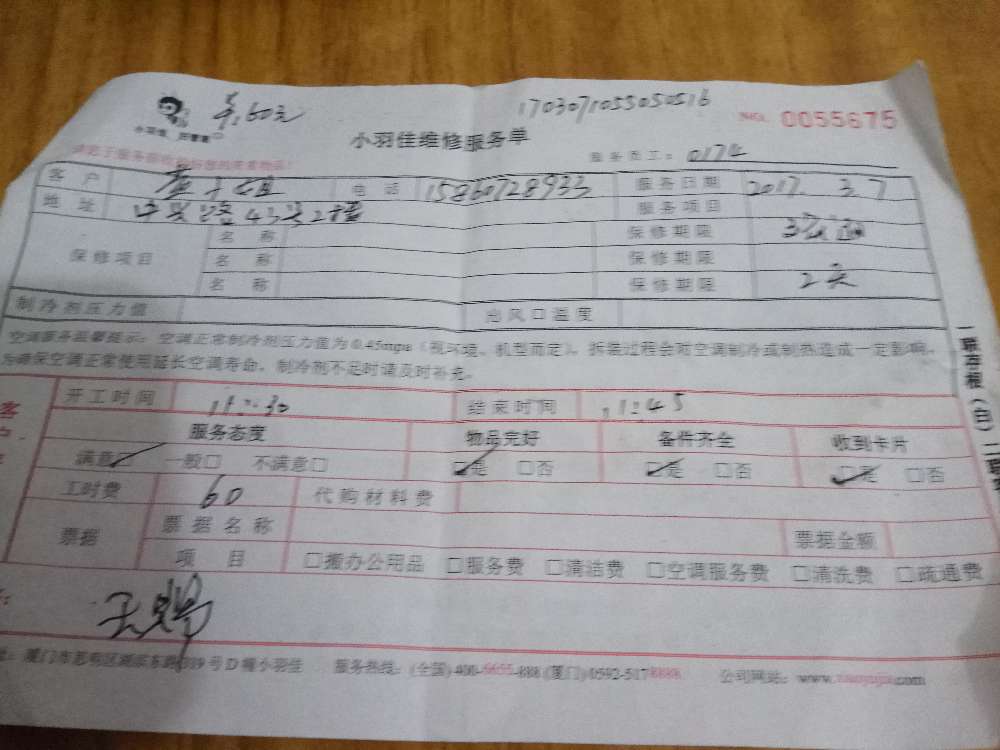 羊:60元
1703071055050516
小羽佳维修服务单
NO. 0055675
服务员工: 0174
客户 电话 15860128933 服务日期 2017. 3. 7
地址 中兴路43号2楼 服务项目
保修项目 名称 保修期限
名称 保修期限
名称 保修期限 2天
制冷剂压力值 出风口温度
空调服务温馨提示: 空调正常制冷剂压力值为0.45mpa (视环境、机型而定)。拆装过程会对空调制冷或制热造成一定影响,
为确保空调正常使用延长空调寿命, 制冷剂不足时请及时补充。
开工时间 11:30 结束时间 11:45
服务态度 物品完好 备件齐全 收到卡片
满意☑ 一般□ 不满意□ ☑是 □否 ☑是 □否 ☑是 □否
工时费 60 代购材料费
票据 票据名称 票据金额
项目 □搬办公用品 □服务费 □清洁费 □空调服务费 □清洗费 □疏通费
址: 厦门市思明区湖滨东路319号D幢小羽佳 服务热线: (全国) 400-6655-888 (厦门) 0592-5178888 公司网站: www.xiaoyujia.com
一联存根 (白) 二联